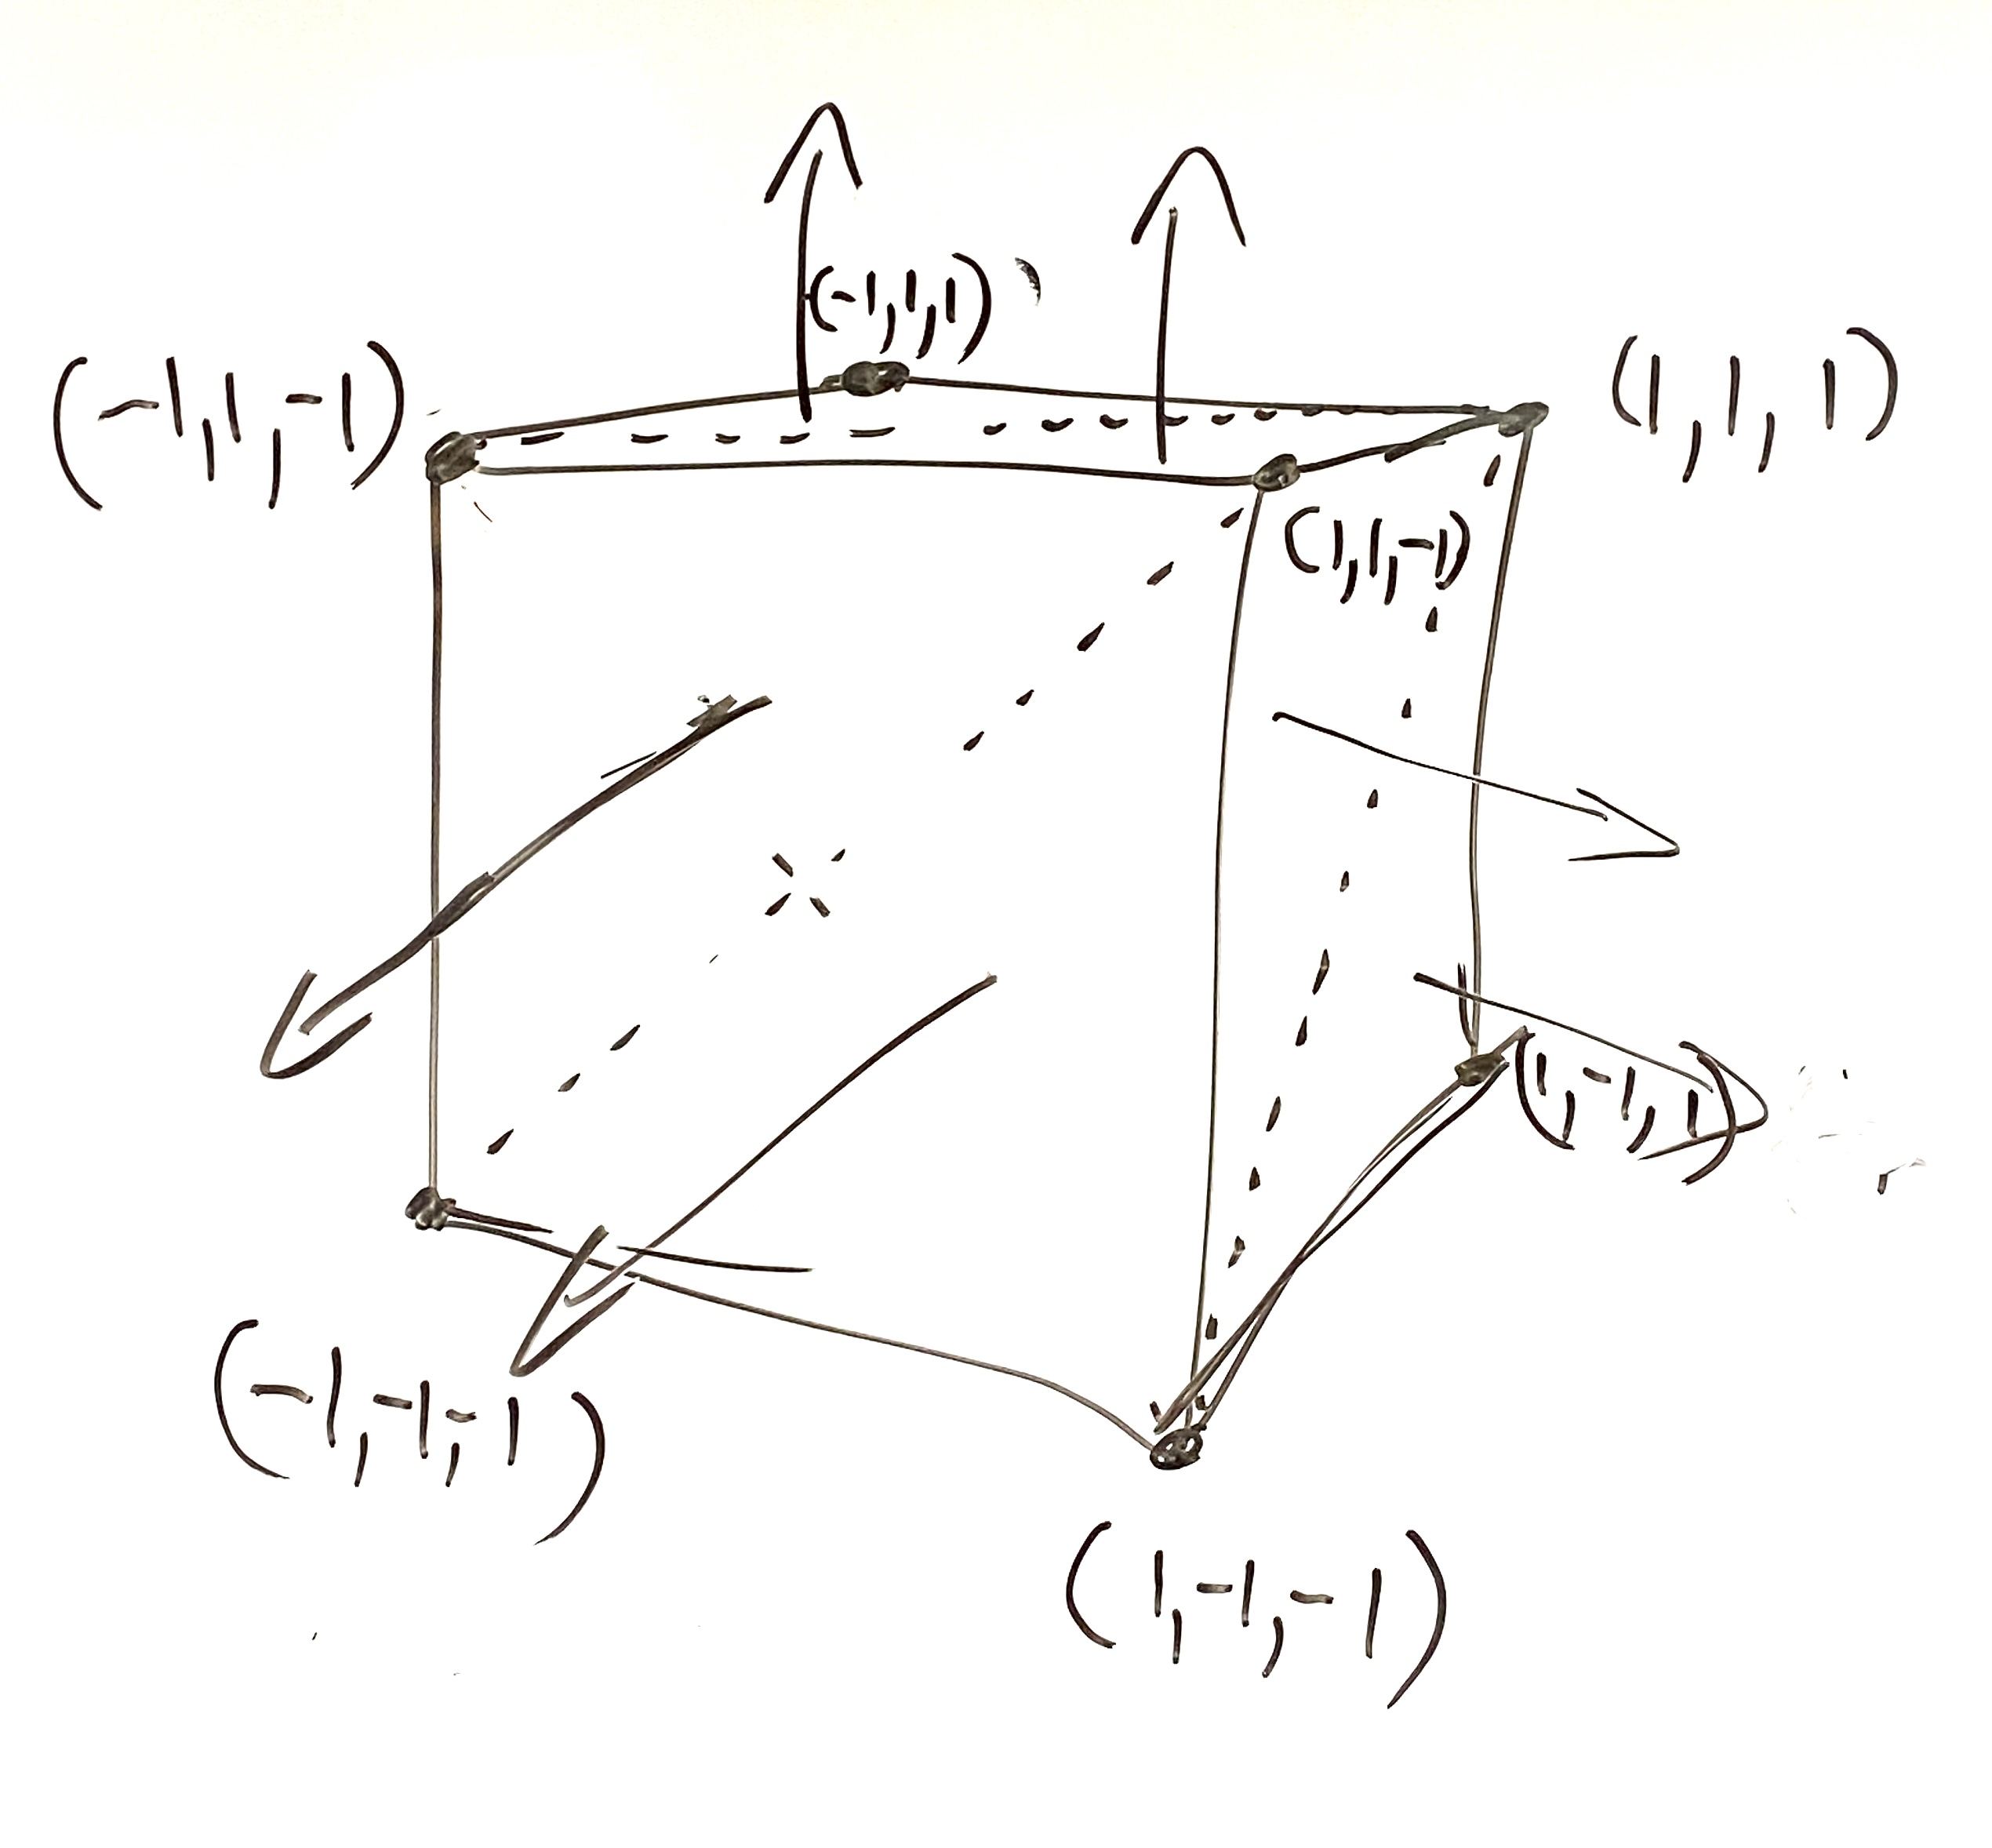 (-1,1,1)
(-1,1,-1)
(1,1,1)
(1,1,-1)
(1,-1,1)
(-1,-1,-1)
(1,-1,-1)